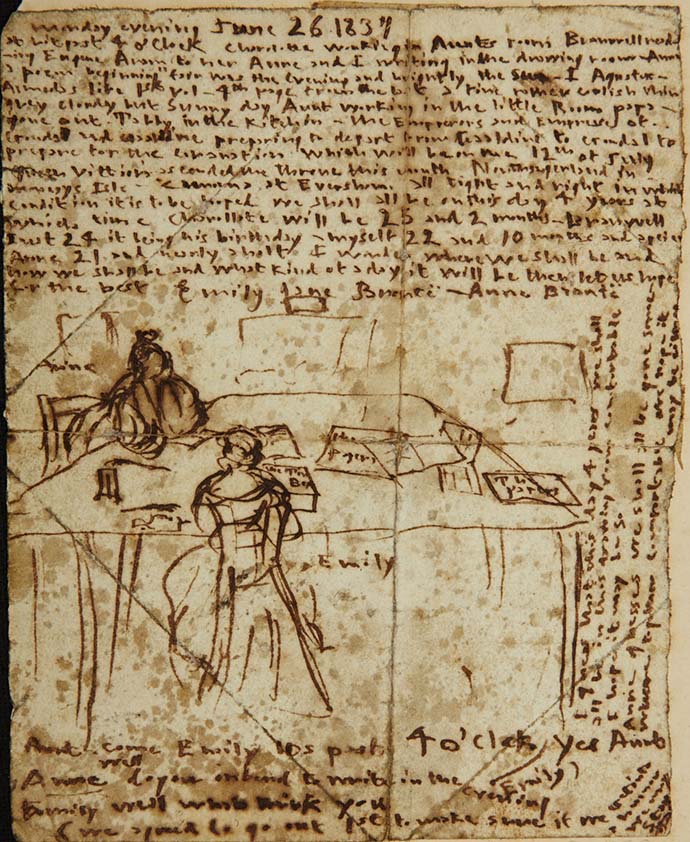 Monday evening June 26 1837
A bit past 4 o'Clock Charolotte working in Aunts room Branwell read-
ing Eugene Aram to her Anne and I writing in the drawing room - Anne
a poem beginning fair was the evening and brightly the sun - I Agustus -
Almedas life 1st vol - 4th page from the last a fine rather coolish thin
grey cloudy but Sunny day Aunt working in the little Room papa -
gone out. Tabby in the Kitchin - the Emperors and Empreses of
Gondal and Gaaldine preparing to depart from Gaaldine to Gondal to
prepare for the coranation which will be on the 12th of July
Queen Vittiora ascended the throne this month. Northangerland in
Monceys Isle - Zamorna at Eversham. all tight and right in which
condition it is to be hoped we shall all be on this day 4 years at
which time Charollote will be 25 and 2 months - Branwell
just 24 it being his birthday - myself 22 and 10 months and a peice
Anne 21 and nearly a half I wonder where we shall be and
how we shall be and what kind of a day it will be then let us hope
for the best Emily Jane Brontë - Anne Brontë
Anne
The
papers
The Tin
Box
The
papers
Emily
I guess that this day 4 years we shall
all be in this drawing room comfortable
I hope it may be so
Anne guesses we shall all be gone some
where together comfortable
Aunt come Emily Its past 4 o'Clock Yes Aunt
Anne well do you intend to write in the evening
(Emily)
Emily well what think you
(we agreed to go out 1st to make sure if we